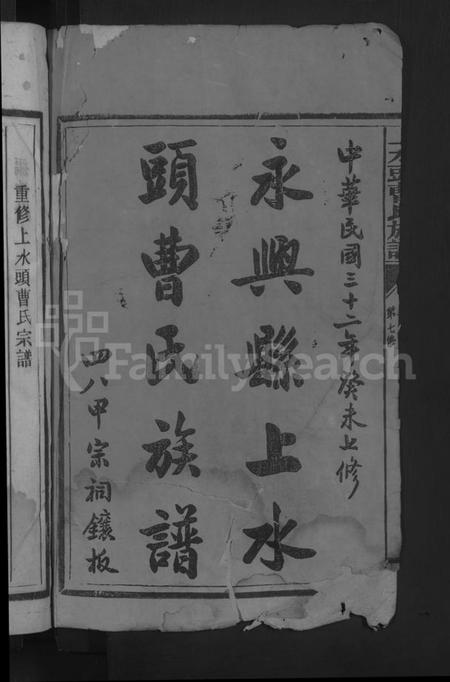 中華民國三十二年癸未上修
永興縣上水
頭曹氏族譜
四八甲宗祠鑲板
重修上水頭曹氏宗譜
第七修
FamilySearch